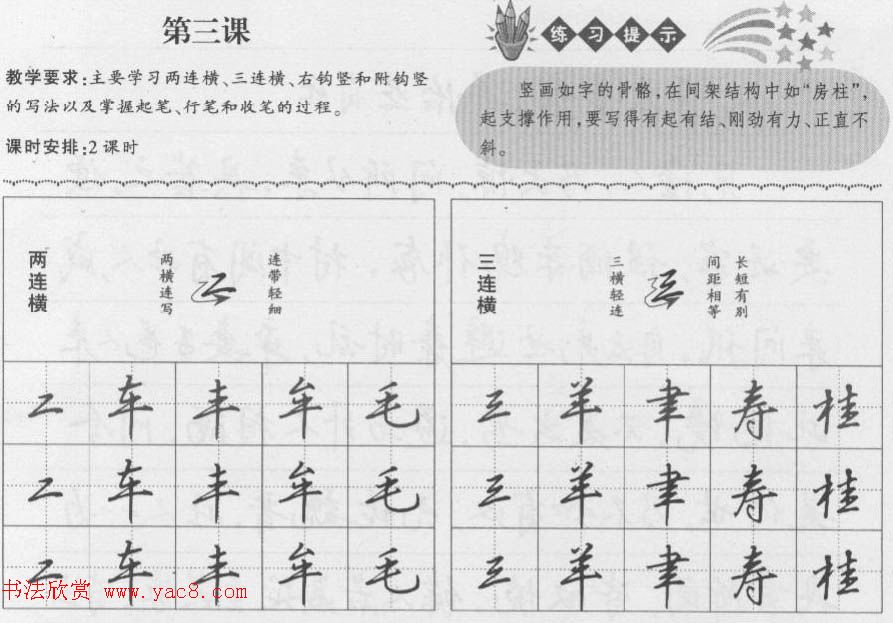 第三课
教学要求:主要学习两连横、三连横、右钩竖和附钩竖
的写法以及掌握起笔、行笔和收笔的过程。
课时安排:2课时
练习提示
竖画如字的骨骼,在间架结构中如“房柱”,
起支撑作用,要写得有起有结、刚劲有力、正直不
斜。
两连横
两横连写
连带轻细
三连横
三横轻连
间距相等
长短有别
二 车 丰 牟 毛
二 车 丰 牟 毛
二 车 丰 牟 毛
三 羊 聿 寿 桂
三 羊 聿 寿 桂
三 羊 聿 寿 桂
书法欣赏 www.yac8.com